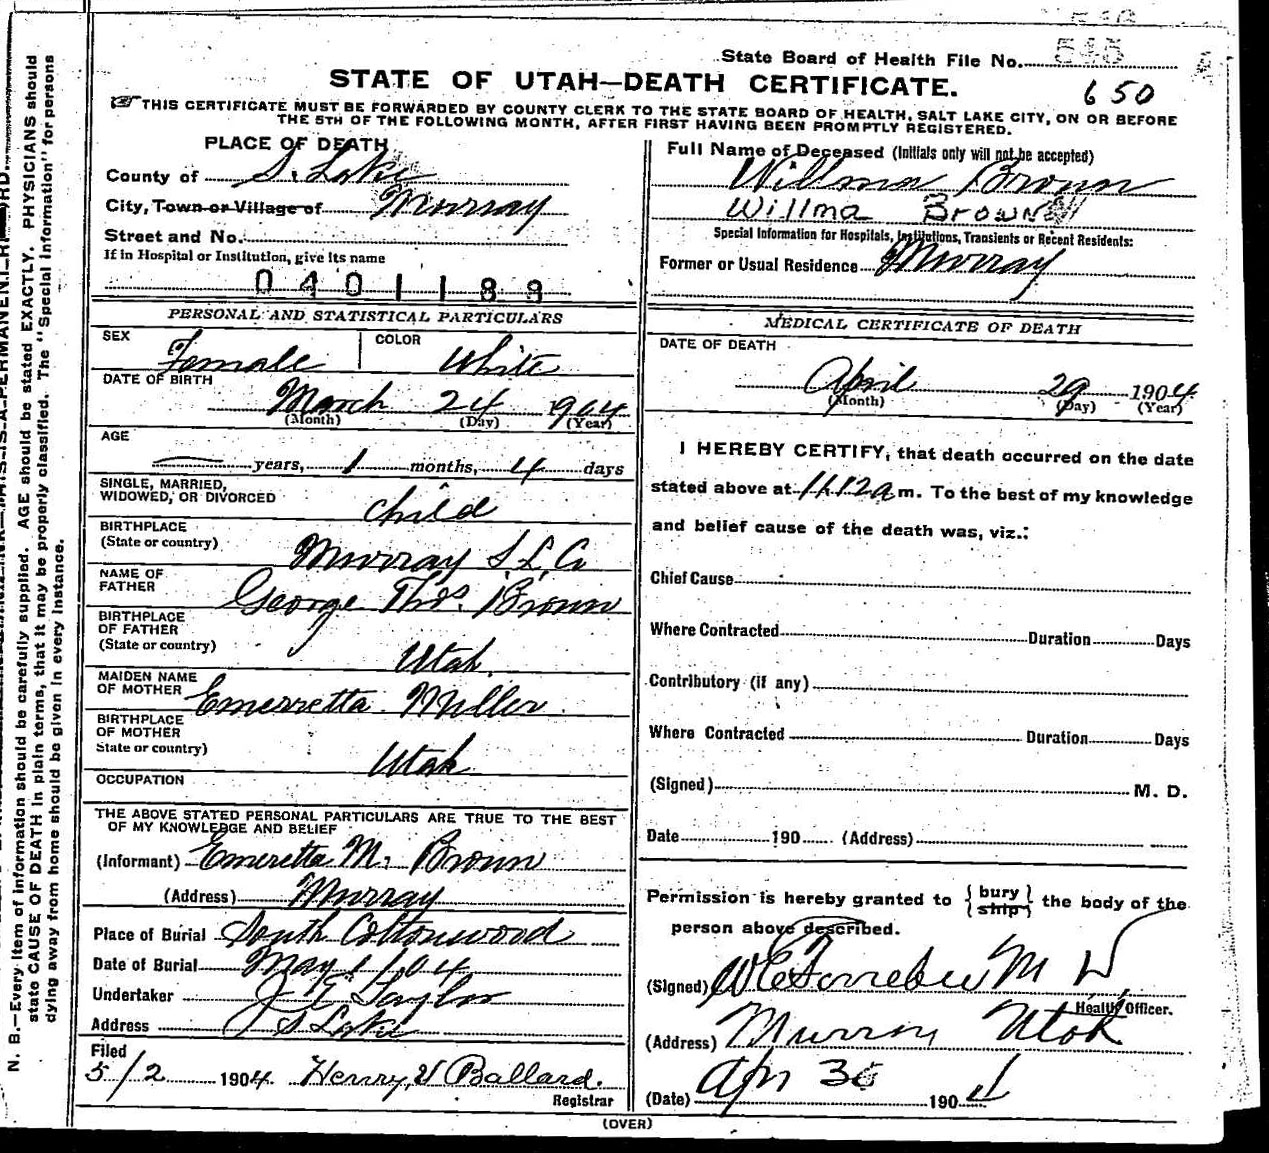 State Board of Health File No. 545
STATE OF UTAH—DEATH CERTIFICATE.
650
THIS CERTIFICATE MUST BE FORWARDED BY COUNTY CLERK TO THE STATE BOARD OF HEALTH, SALT LAKE CITY, ON OR BEFORE
THE 5TH OF THE FOLLOWING MONTH, AFTER FIRST HAVING BEEN PROMPTLY REGISTERED.
PLACE OF DEATH
County of S. Lake
City, Town or Village of Murray
Street and No.
If in Hospital or Institution, give its name
0401188
PERSONAL AND STATISTICAL PARTICULARS
SEX Female COLOR White
DATE OF BIRTH
March 24 1904
(Month) (Day) (Year)
AGE
— years, 1 months, 4 days
SINGLE, MARRIED,
WIDOWED, OR DIVORCED child
BIRTHPLACE
(State or country) Murray S. L. Co
NAME OF
FATHER George Thos. Brown
BIRTHPLACE
OF FATHER
(State or country) Utah.
MAIDEN NAME
OF MOTHER Emerretta Miller
BIRTHPLACE
OF MOTHER
State or country) Utah
OCCUPATION
THE ABOVE STATED PERSONAL PARTICULARS ARE TRUE TO THE BEST
OF MY KNOWLEDGE AND BELIEF
(Informant) Emeretta M. Brown
(Address) Murray
Place of Burial South Cottonwood
Date of Burial May 1/04
Undertaker J. E. Taylor
Address S Lake
Filed
5/2 1904. Henry V Ballard.
Registrar
Full Name of Deceased (Initials only will not be accepted)
Willma Brown
Willma Brown
Special Information for Hospitals, Institutions, Transients or Recent Residents:
Former or Usual Residence Murray
MEDICAL CERTIFICATE OF DEATH
DATE OF DEATH
April 29 1904
(Month) (Day) (Year)
I HEREBY CERTIFY, that death occurred on the date
stated above at 11.12 a m. To the best of my knowledge
and belief cause of the death was, viz.:
Chief Cause
Where Contracted Duration Days
Contributory (if any)
Where Contracted Duration Days
(Signed) M. D.
Date 190 (Address)
Permission is hereby granted to {bury ship} the body of the
person above described.
(Signed) M D
Health Officer.
(Address) Murray Utah
(Date) Apr 30 1904
(OVER)
N. B.—Every item of information should be carefully supplied. AGE should be stated EXACTLY. PHYSICIANS should
state CAUSE OF DEATH in plain terms, that it may be properly classified. The "Special Information" for persons
dying away from home should be given in every instance.